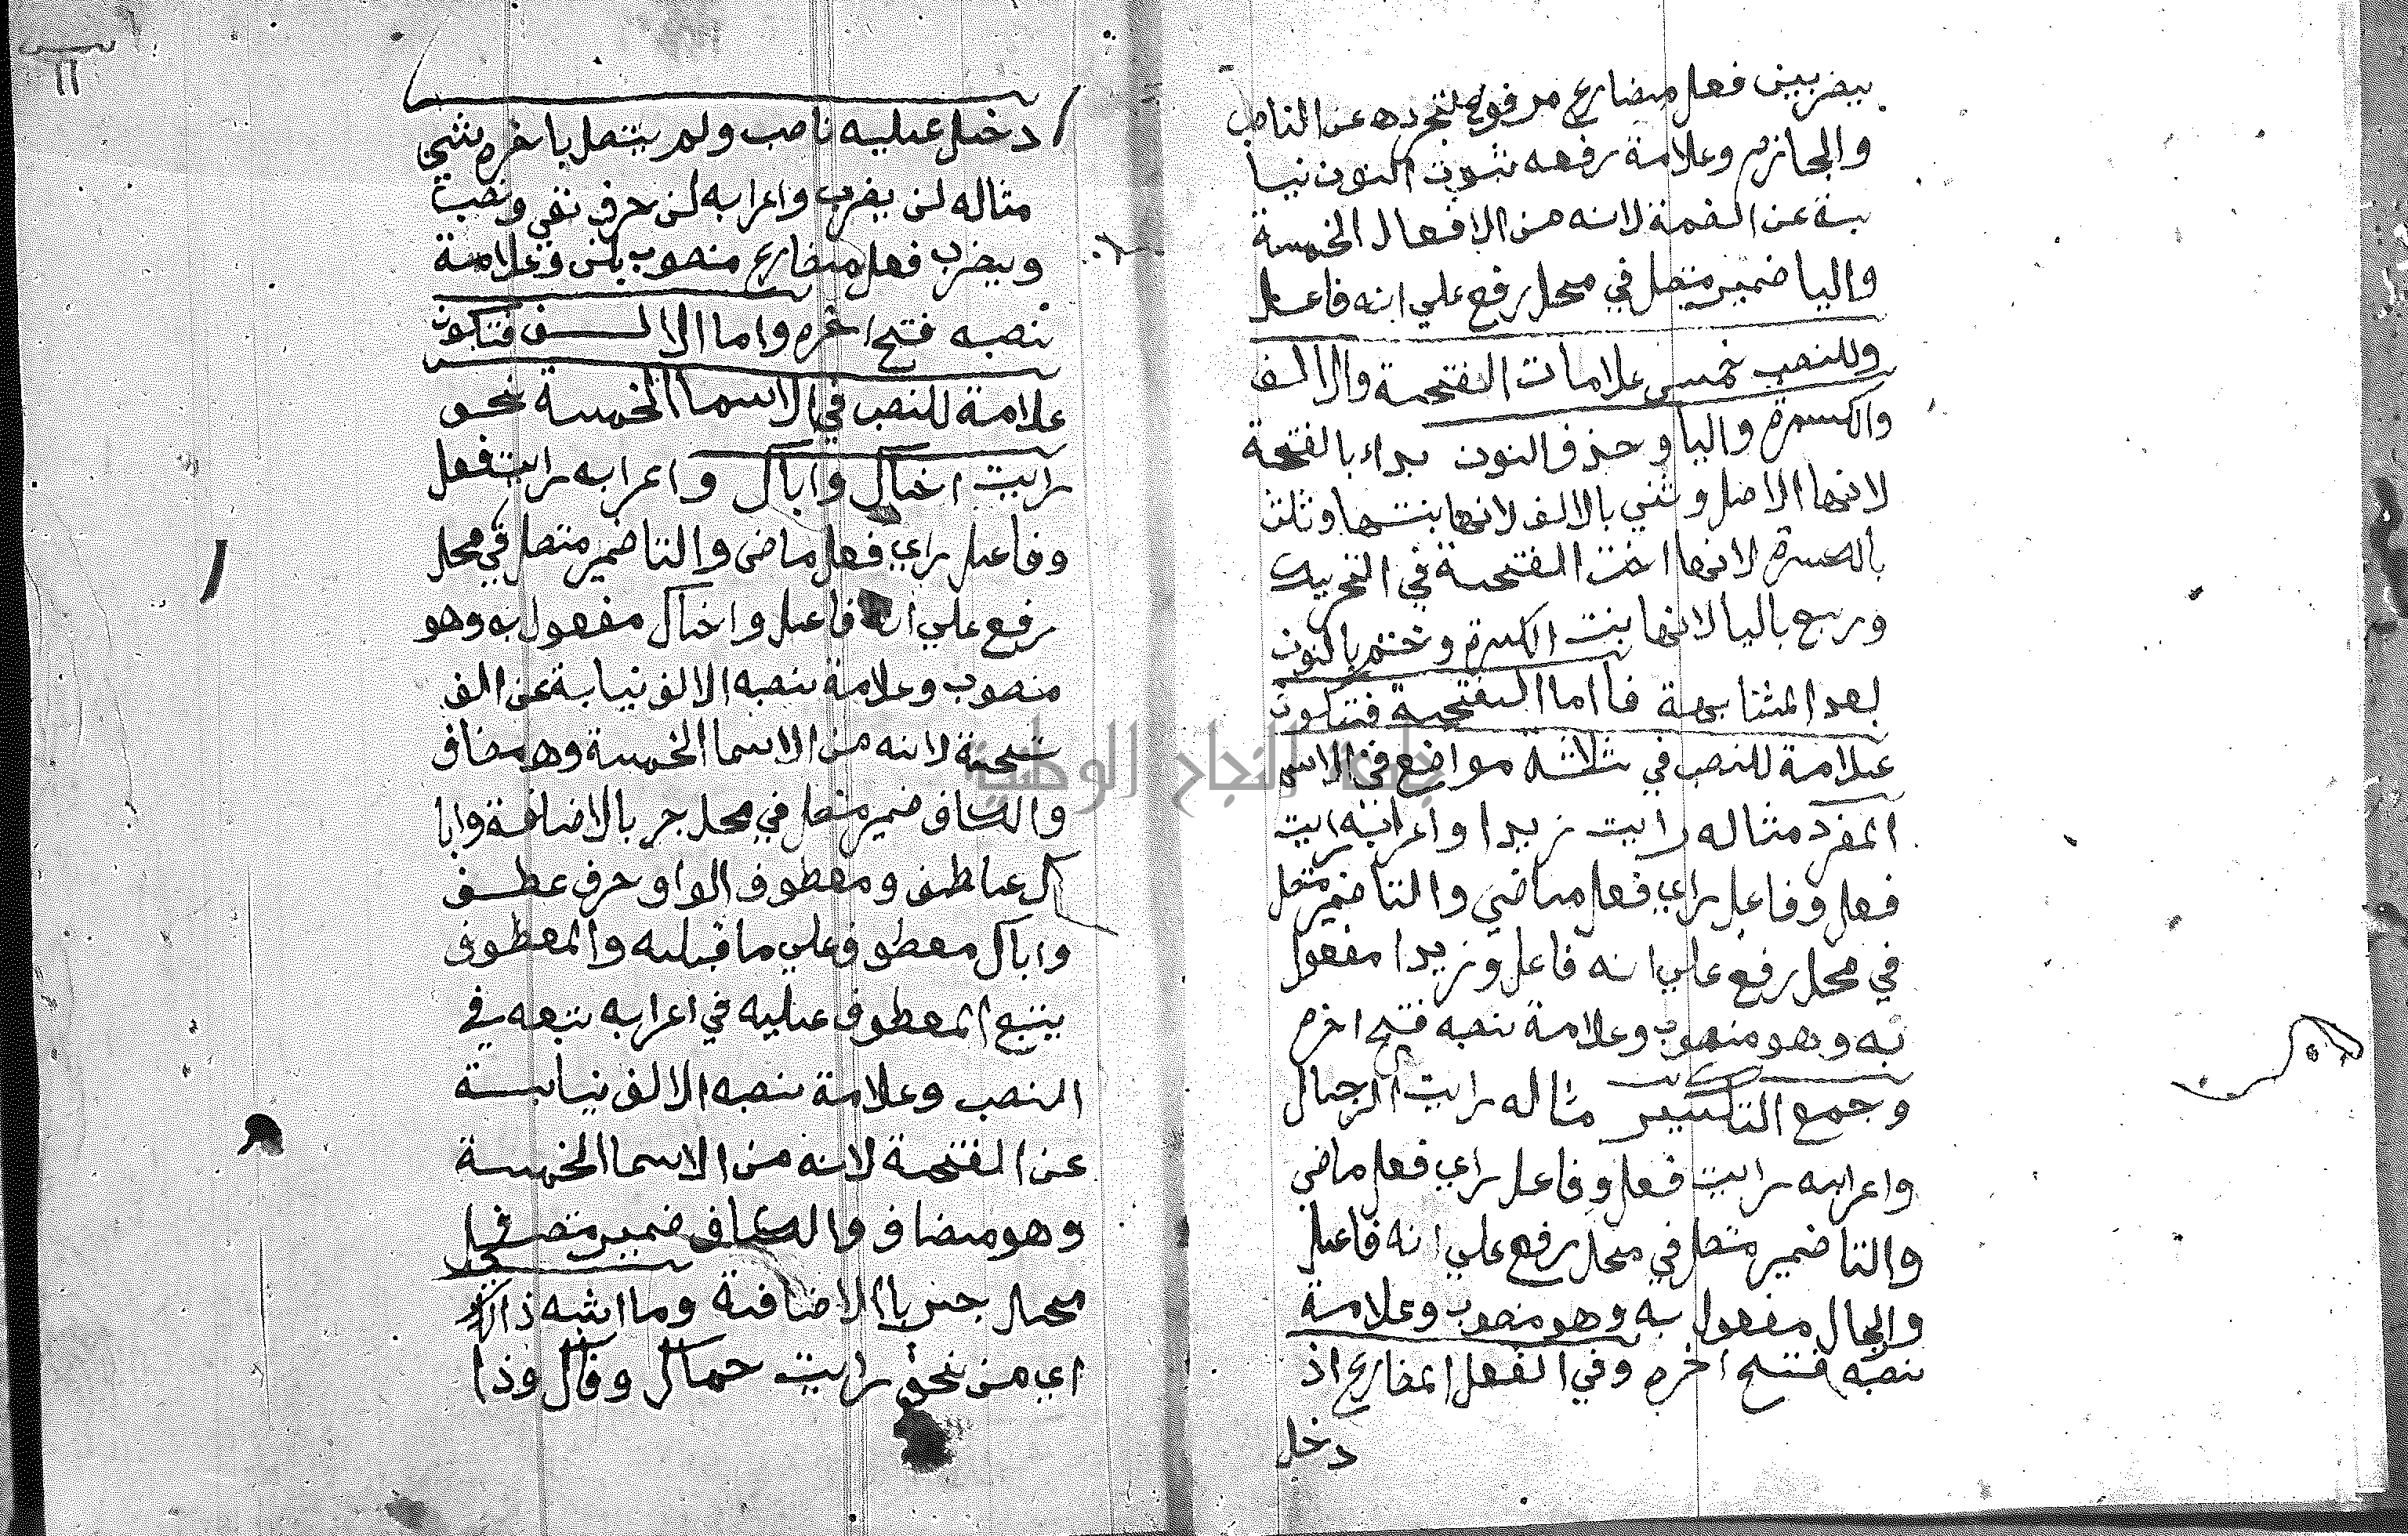 يضربين فعل مضارع مرفوع لتجرده عن الناصب
والجازم وعلامة رفعه ثبوت النون نيا
بة عن الضمة لانه من الافعال الخمسة
واليا ضمير متصل في محل رفع علي انه فاعل
وللنصب خمس علامات الفتحة والالف
والكسرة واليا وحذف النون بداء بالفتحة
لانها الاصل وثني بالالف لانها بنتها وثلث
بالكسرة لانها اخت الفتحة في التحريك
وربع باليا لانها بنت الكسرة وختم بالنون
لبعد المشابهة فأاما الفتحة فتكون
علامة للنصب في ثلاثة مواضع في الاسم
المفرد مثاله رايت زيدا واعرابه رايت
فعل وفاعل راي فعل ماضي والتا ضمير متصل
في محل رفع علي انه فاعل وزيدا مفعول
به وهو منصوب وعلامة نصبه فتح اخره
وجمع التكسير مثاله رايت الرجال
واعرابه رايت فعل وفاعل راي فعل ماضي
والتا ضمير متصل في محل رفع علي انه فاعل
والجال مفعول به وهو منصوب وعلامة
نصبه فتح اخره وفي الفعل المضارع اذ
دخل
١١
دخل عليه ناصب ولم يتصل باخره شي
مثاله لن يضرب واعرابه لن حرف نفي ونصب
ويضرب فعل مضارع منصوب بلن وعلامة
نصبه فتح اخره واما الالف فتكون
علامة للنصب في الاسما الخمسة نحو
رايت اخاك واباك واعرابه رايت فعل
وفاعل راي فعل ماضى والتا ضمير متصل في محل
رفع علي انه فاعل واخاك مفعول به وهو
منصوب وعلامة نصبه الالف نيابة عن الف
تحة لانه من الاسما الخمسة وهو مضاف
والكاف ضمير متصل في محل جر بالاضافة وابا
ك عاطف ومعطوف الواو حرف عطف
واباك معطوف علي ما قبله والمعطوف
يتبع المعطوف عليه في اعرابه تبعه في
النصب وعلامة نصبه الالف نيابة
عن الفتحة لانه من الاسما الخمسة
وهو مضاف والكاف ضمير متصل في
محل جر باالاضافة وما اشبه ذالك
اي من نحو رايت حماك وفاك وذا
جامعة النجاح الوطنية